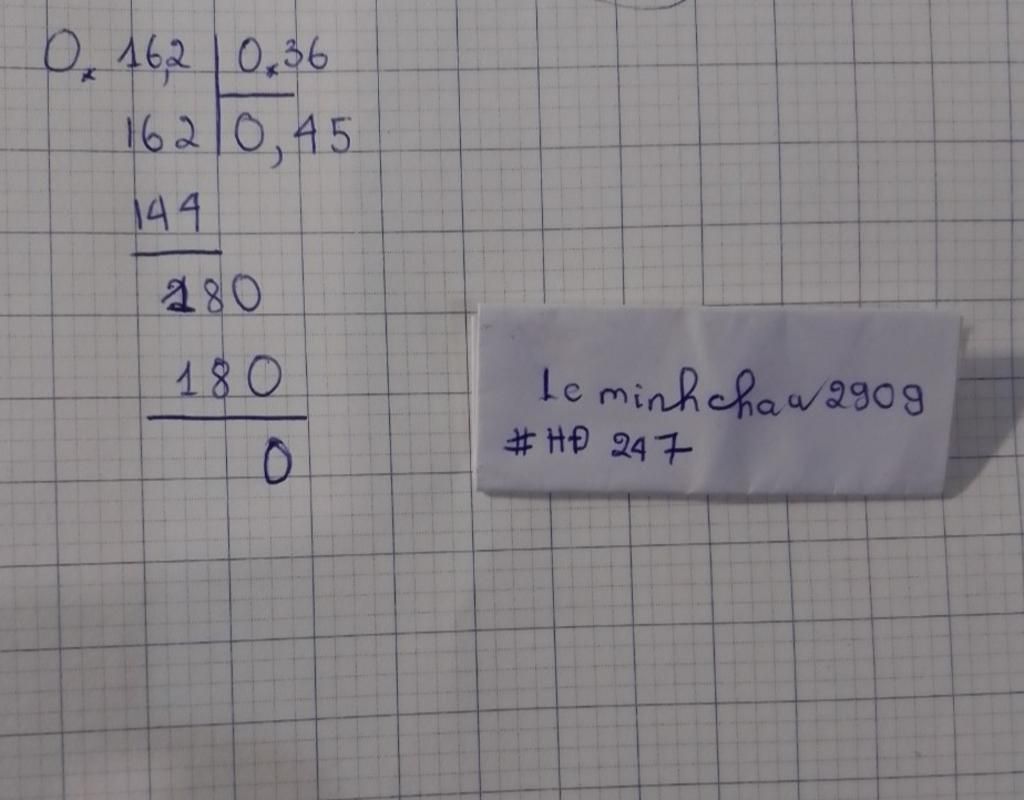 0, 16,2 | 0,36
162 | 0,45
144
180
180
0
le minhchau2909
#HĐ 247